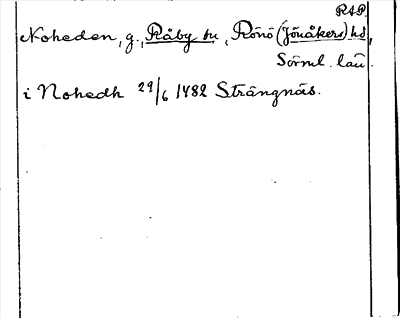 RAP.
Noheden, g., Råby sn, Rönö (Jönåkers) hd,
Sörml. län.
i Nohedh 29/6 1482 Strängnäs.